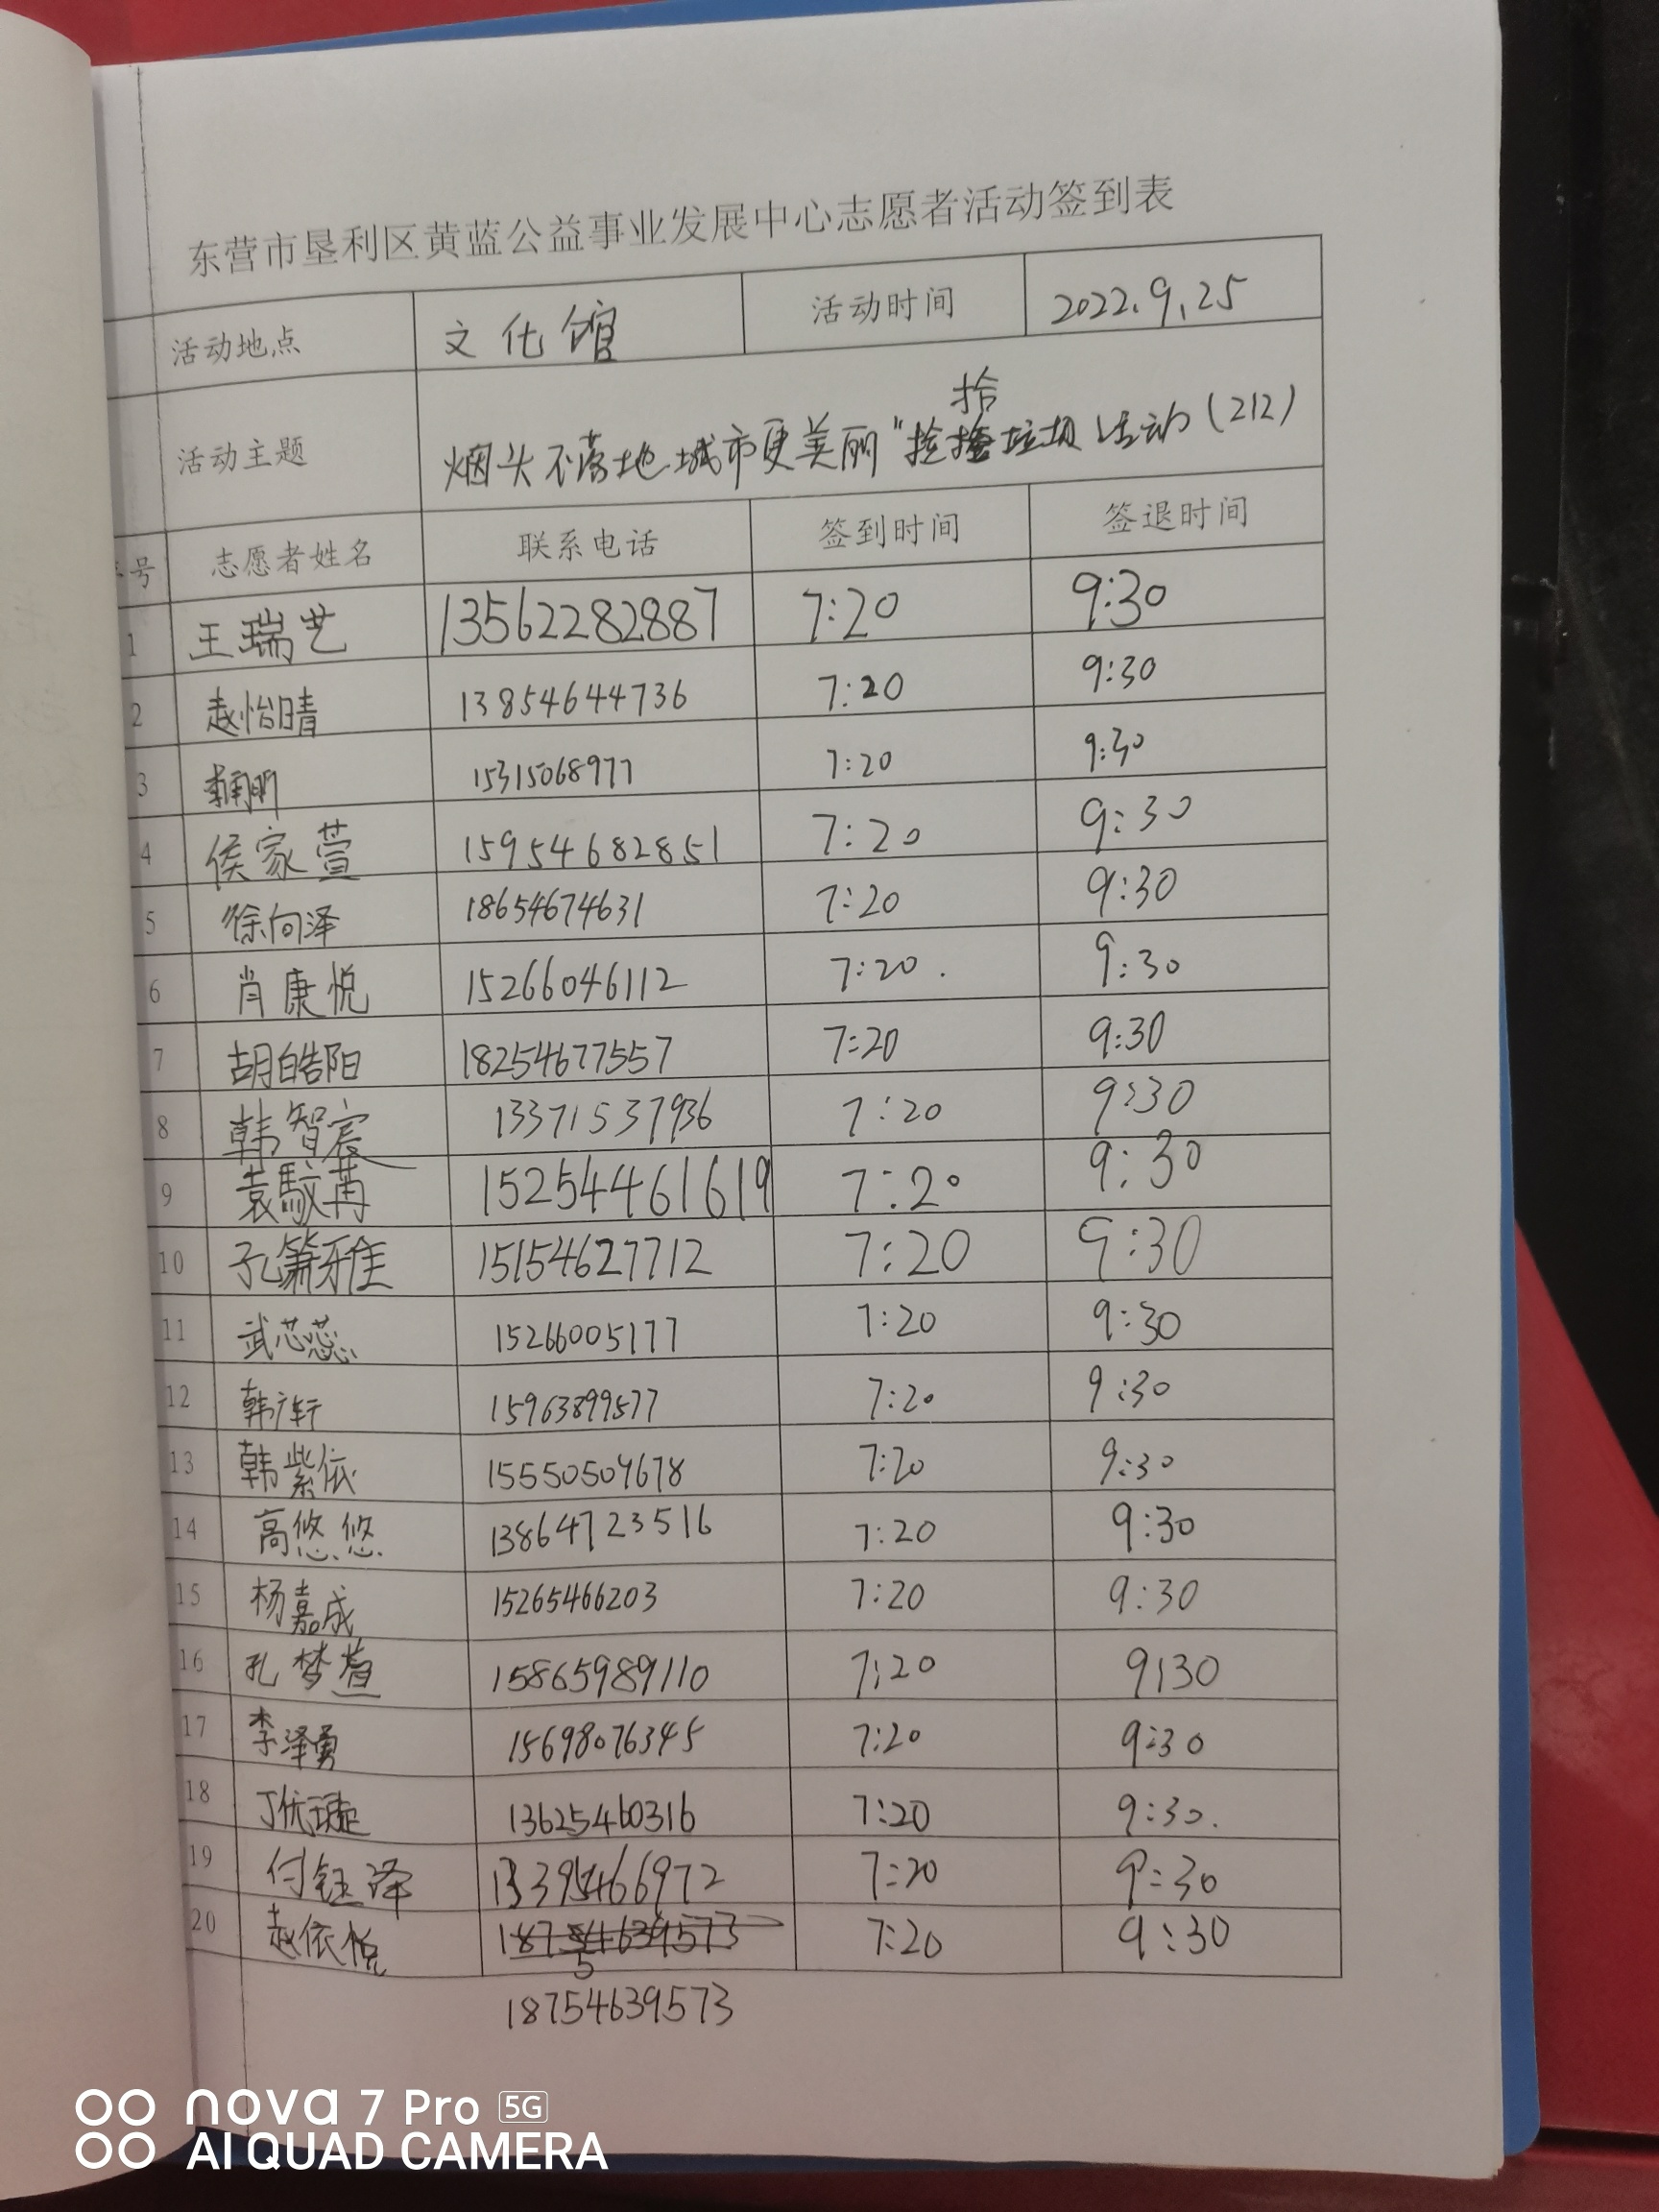 东营市垦利区黄蓝公益事业发展中心志愿者活动签到表
活动地点 文化馆 活动时间 2022.9.25
拾
活动主题 烟头不落地 城市更美丽"捡 垃圾活动(212)
号 志愿者姓名 联系电话 签到时间 签退时间
1 王瑞艺 13562282887 7:20 9:30
2 赵怡晴 13854644736 7:20 9:30
3 15315068977 7:20 9:30
4 侯家萱 15954682851 7:20 9:30
5 徐向泽 18654674631 7:20 9:30
6 肖康悦 15266046112 7:20. 9:30
7 胡皓阳 18254677557 7:20 9:30
8 韩智宸 13371537936 7:20 9:30
9 袁馭苒 15254461619 7:20 9:30
10 孔箫雅 15154627712 7:20 9:30
11 武芯蕊 15266005177 7:20 9:30
12 韩广轩 15963899577 7:20 9:30
13 韩紫依 15550509678 7:20 9:30
14 高悠悠 13864723516 7:20 9:30
15 杨嘉成 15265466203 7:20 9:30
16 孔梦萱 15865989110 7:20 9:30
17 李泽勇 15698076345 7:20 9:30
18 丁优璇 13625460316 7:20 9:30.
19 付钰泽 13395466972 7:20 9:30
20 赵依悦 7:20 9:30
5
18754639573
nova 7 Pro 5G
AI QUAD CAMERA